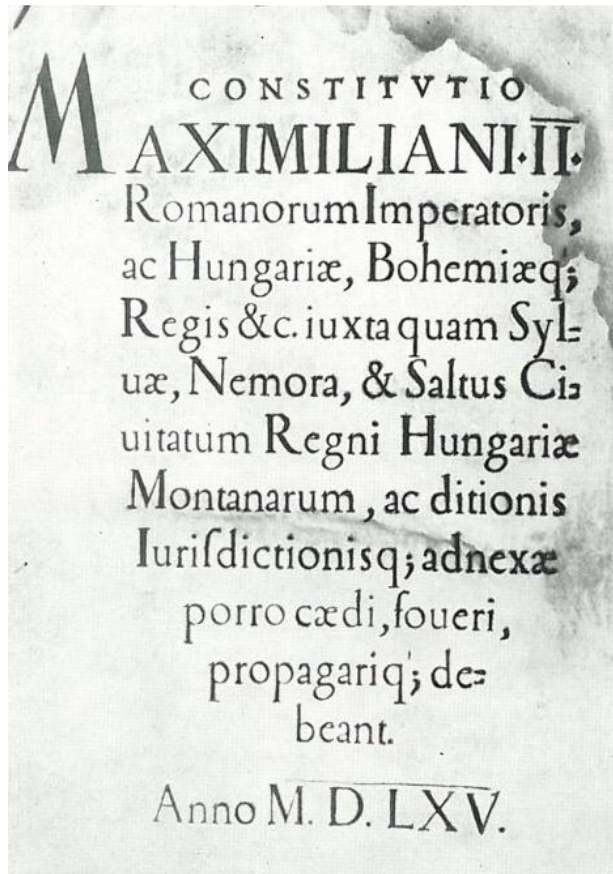 CONSTITVTIO
MAXIMILIANI·II·
Romanorum Imperatoris,
ac Hungariæ, Bohemiæq́;
Regis &c. iuxta quam Syl=
uæ, Nemora, & Saltus Ci=
uitatum Regni Hungariæ
Montanarum, ac ditionis
Iuriſdictionisq; adnexæ
porro cædi, foueri,
propagariq́; de=
beant.
Anno M. D. LXV.